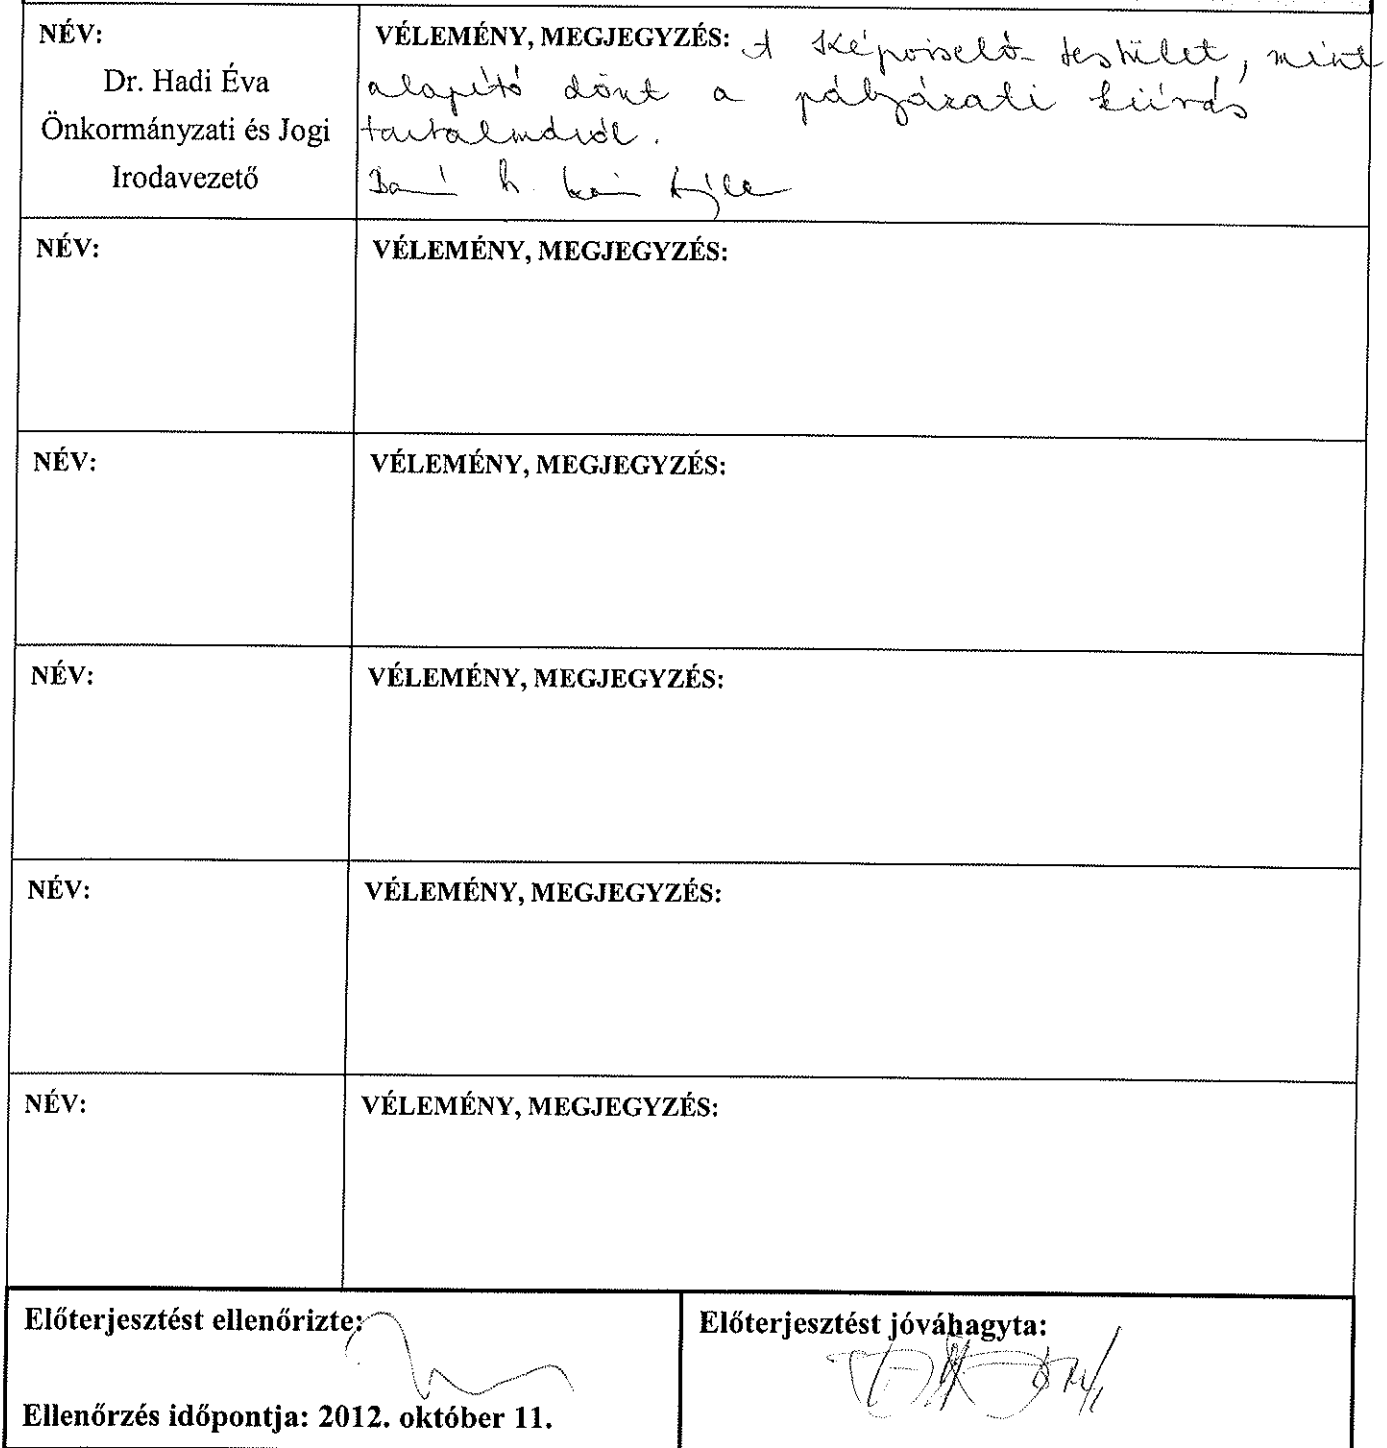 NÉV:
Dr. Hadi Éva
Önkormányzati és Jogi
Irodavezető
VÉLEMÉNY, MEGJEGYZÉS: A Képviselő-testület, mint
alapító dönt a pályázati kiírás
tartalmáról.
NÉV:
VÉLEMÉNY, MEGJEGYZÉS:
NÉV:
VÉLEMÉNY, MEGJEGYZÉS:
NÉV:
VÉLEMÉNY, MEGJEGYZÉS:
NÉV:
VÉLEMÉNY, MEGJEGYZÉS:
NÉV:
VÉLEMÉNY, MEGJEGYZÉS:
Előterjesztést ellenőrizte:
Ellenőrzés időpontja: 2012. október 11.
Előterjesztést jóváhagyta: